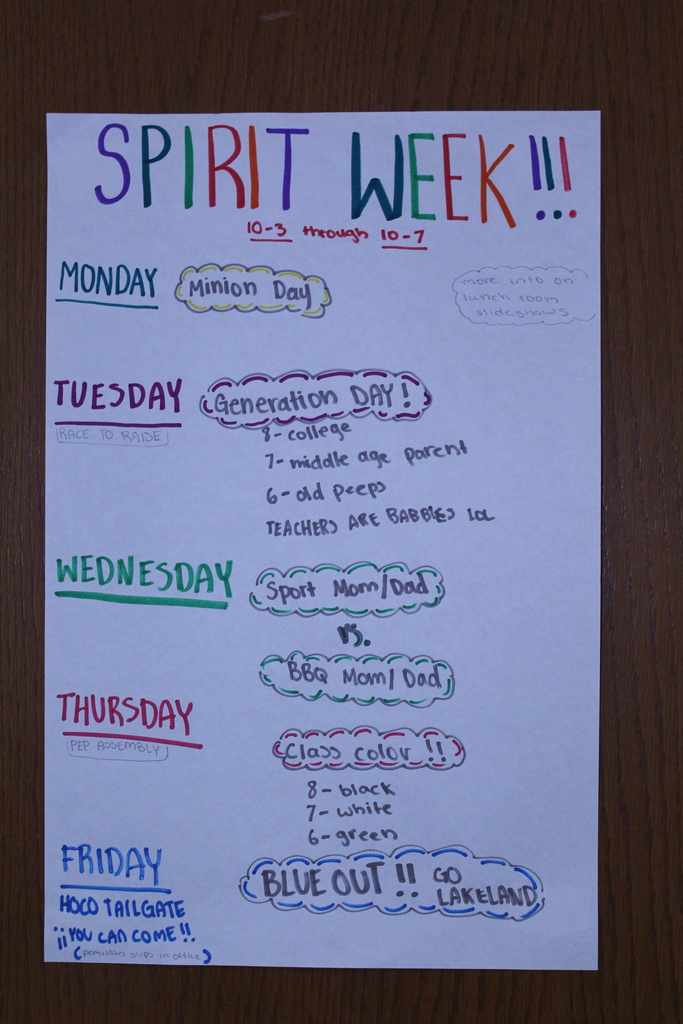 SPIRIT WEEK!!!
10-3 through 10-7
MONDAY Minion Day
more into on
lunch room
slideshows
TUESDAY Generation DAY!
RACE TO RAISE
8-college
7-middle age parent
6-old peeps
TEACHERS ARE BABBIES LOL
WEDNESDAY Sport Mom/Dad
vs.
BBQ Mom/Dad
THURSDAY
PEP ASSEMBLY
Class color !!
8-black
7-white
6-green
FRIDAY BLUE OUT !! GO
LAKELAND
HOCO TAILGATE
¡¡YOU CAN COME!!
(permission slips in office)